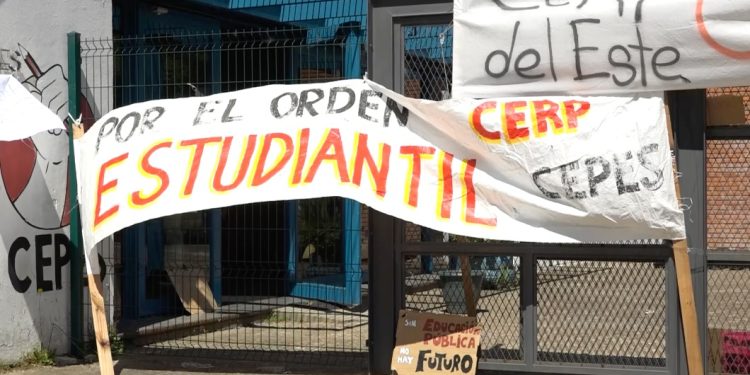 del Este
POR EL ORDEN
ESTUDIANTIL
CERP
CEPES
CEP
SIN
EDUCACIÓN
PÚBLICA
NO HAY
FUTURO